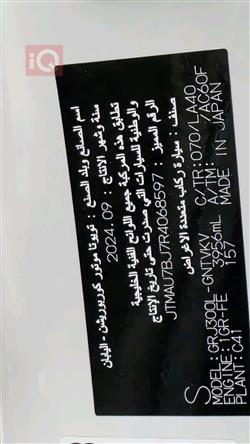 iQ
اسم الصانع وبلد الصنع : تويوتا موتور كوربوريشن - اليابان
سنة وشهر الإنتاج : 2024.09
تطابق هذه المركبة جميع اللوائح الفنية الخليجية
والوطنية للسيارات التي صدرت حتى تاريخ الإنتاج
الرقم المميز : JTMAU7BJ7R4068597
صنف : سيارة ركاب متعددة الأغراض
C/TR:070/LA40
A/TM: /AC60F
MADE IN JAPAN
S
MODEL:GRJ300L-GNTVKV
ENGINE:1GR-FE 3956mL
PLANT: C41 157